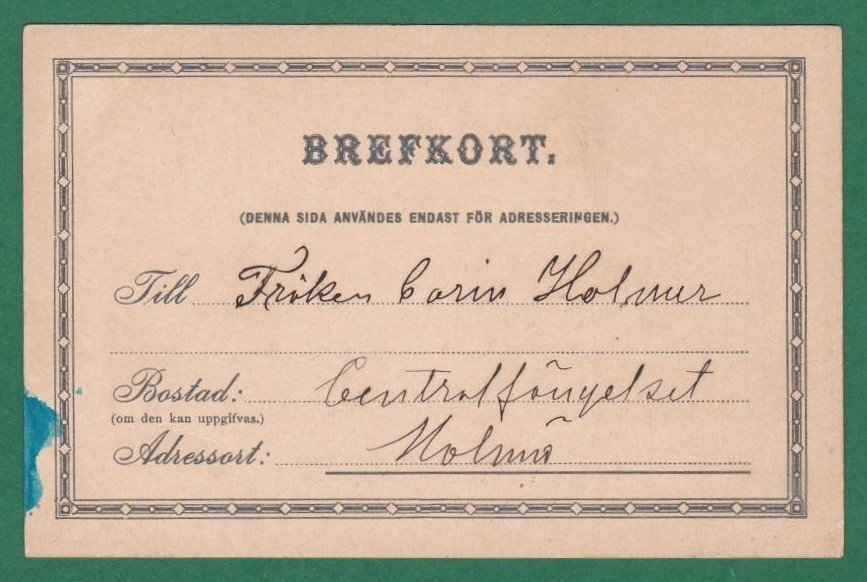 BREFKORT.
(DENNA SIDA ANVÄNDES ENDAST FÖR ADRESSERINGEN.)
Till Fröken Carin Holmer
Bostad: Centralfängelset
(om den kan uppgifvas.)
Adressort: Malmö